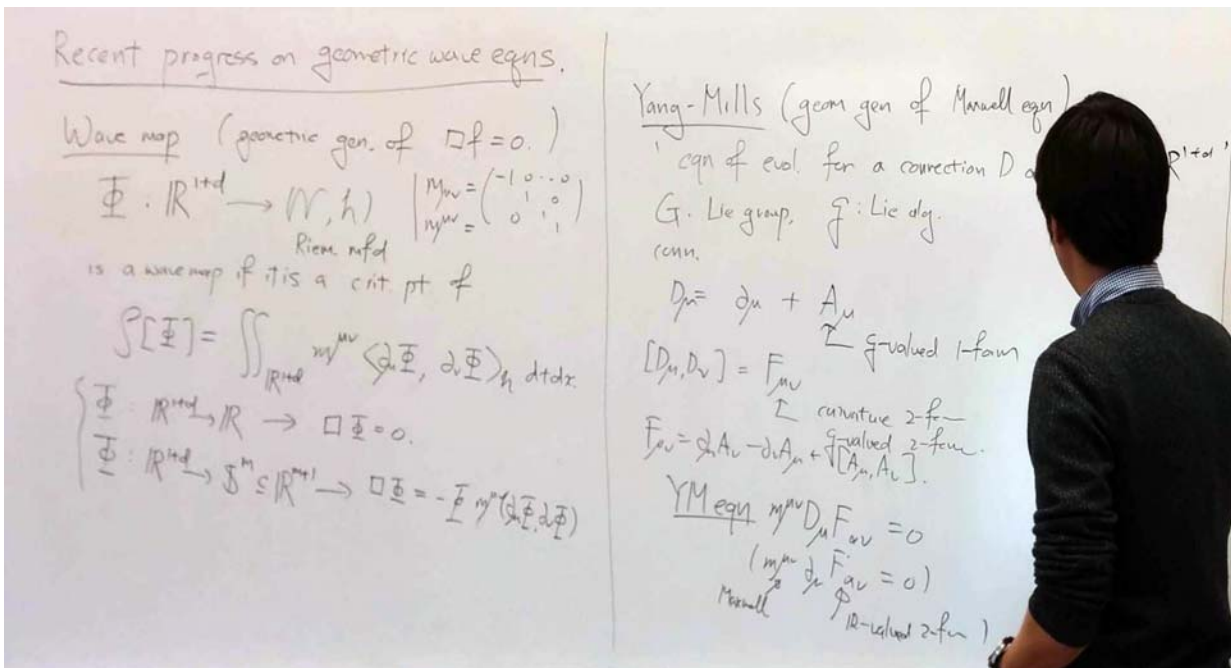 Recent progress on geometric wave eqns.
Wave map (geometric gen. of □f=0.)
Φ : ℝ^{1+d} → (N, h)
Riem. mfd
m_{μν} =
m^{μν} =
(-1 0 ... 0
1 0
0 1
1)
is a wave map if it is a crit. pt of
S[Φ] = ∬_{ℝ^{1+d}} m^{μν} ⟨∂_μΦ, ∂_νΦ⟩_h dtdx.
Φ : ℝ^{1+d} → ℝ → □Φ=0.
Φ : ℝ^{1+d} → 𝕊^m ⊆ ℝ^{m+1} → □Φ = -Φ m^{μν}(∂_μΦ, ∂_νΦ)
Yang-Mills (geom gen of Maxwell eqn)
' eqn of evol. for a connection D ℝ^{1+d} '
G. Lie group, 𝔤 : Lie alg.
conn.
D_μ = ∂_μ + A_μ
𝔤-valued 1-form
[D_μ, D_ν] = F_{μν}
curvature 2-form
𝔤-valued 2-form.
F_{μν} = ∂_μA_ν - ∂_νA_μ + [A_μ, A_ν].
YM eqn m^{μν}D_μF_{αν} = 0
(m^{μν} ∂_μ F_{αν} = 0)
Maxwell
ℝ-valued 2-form )